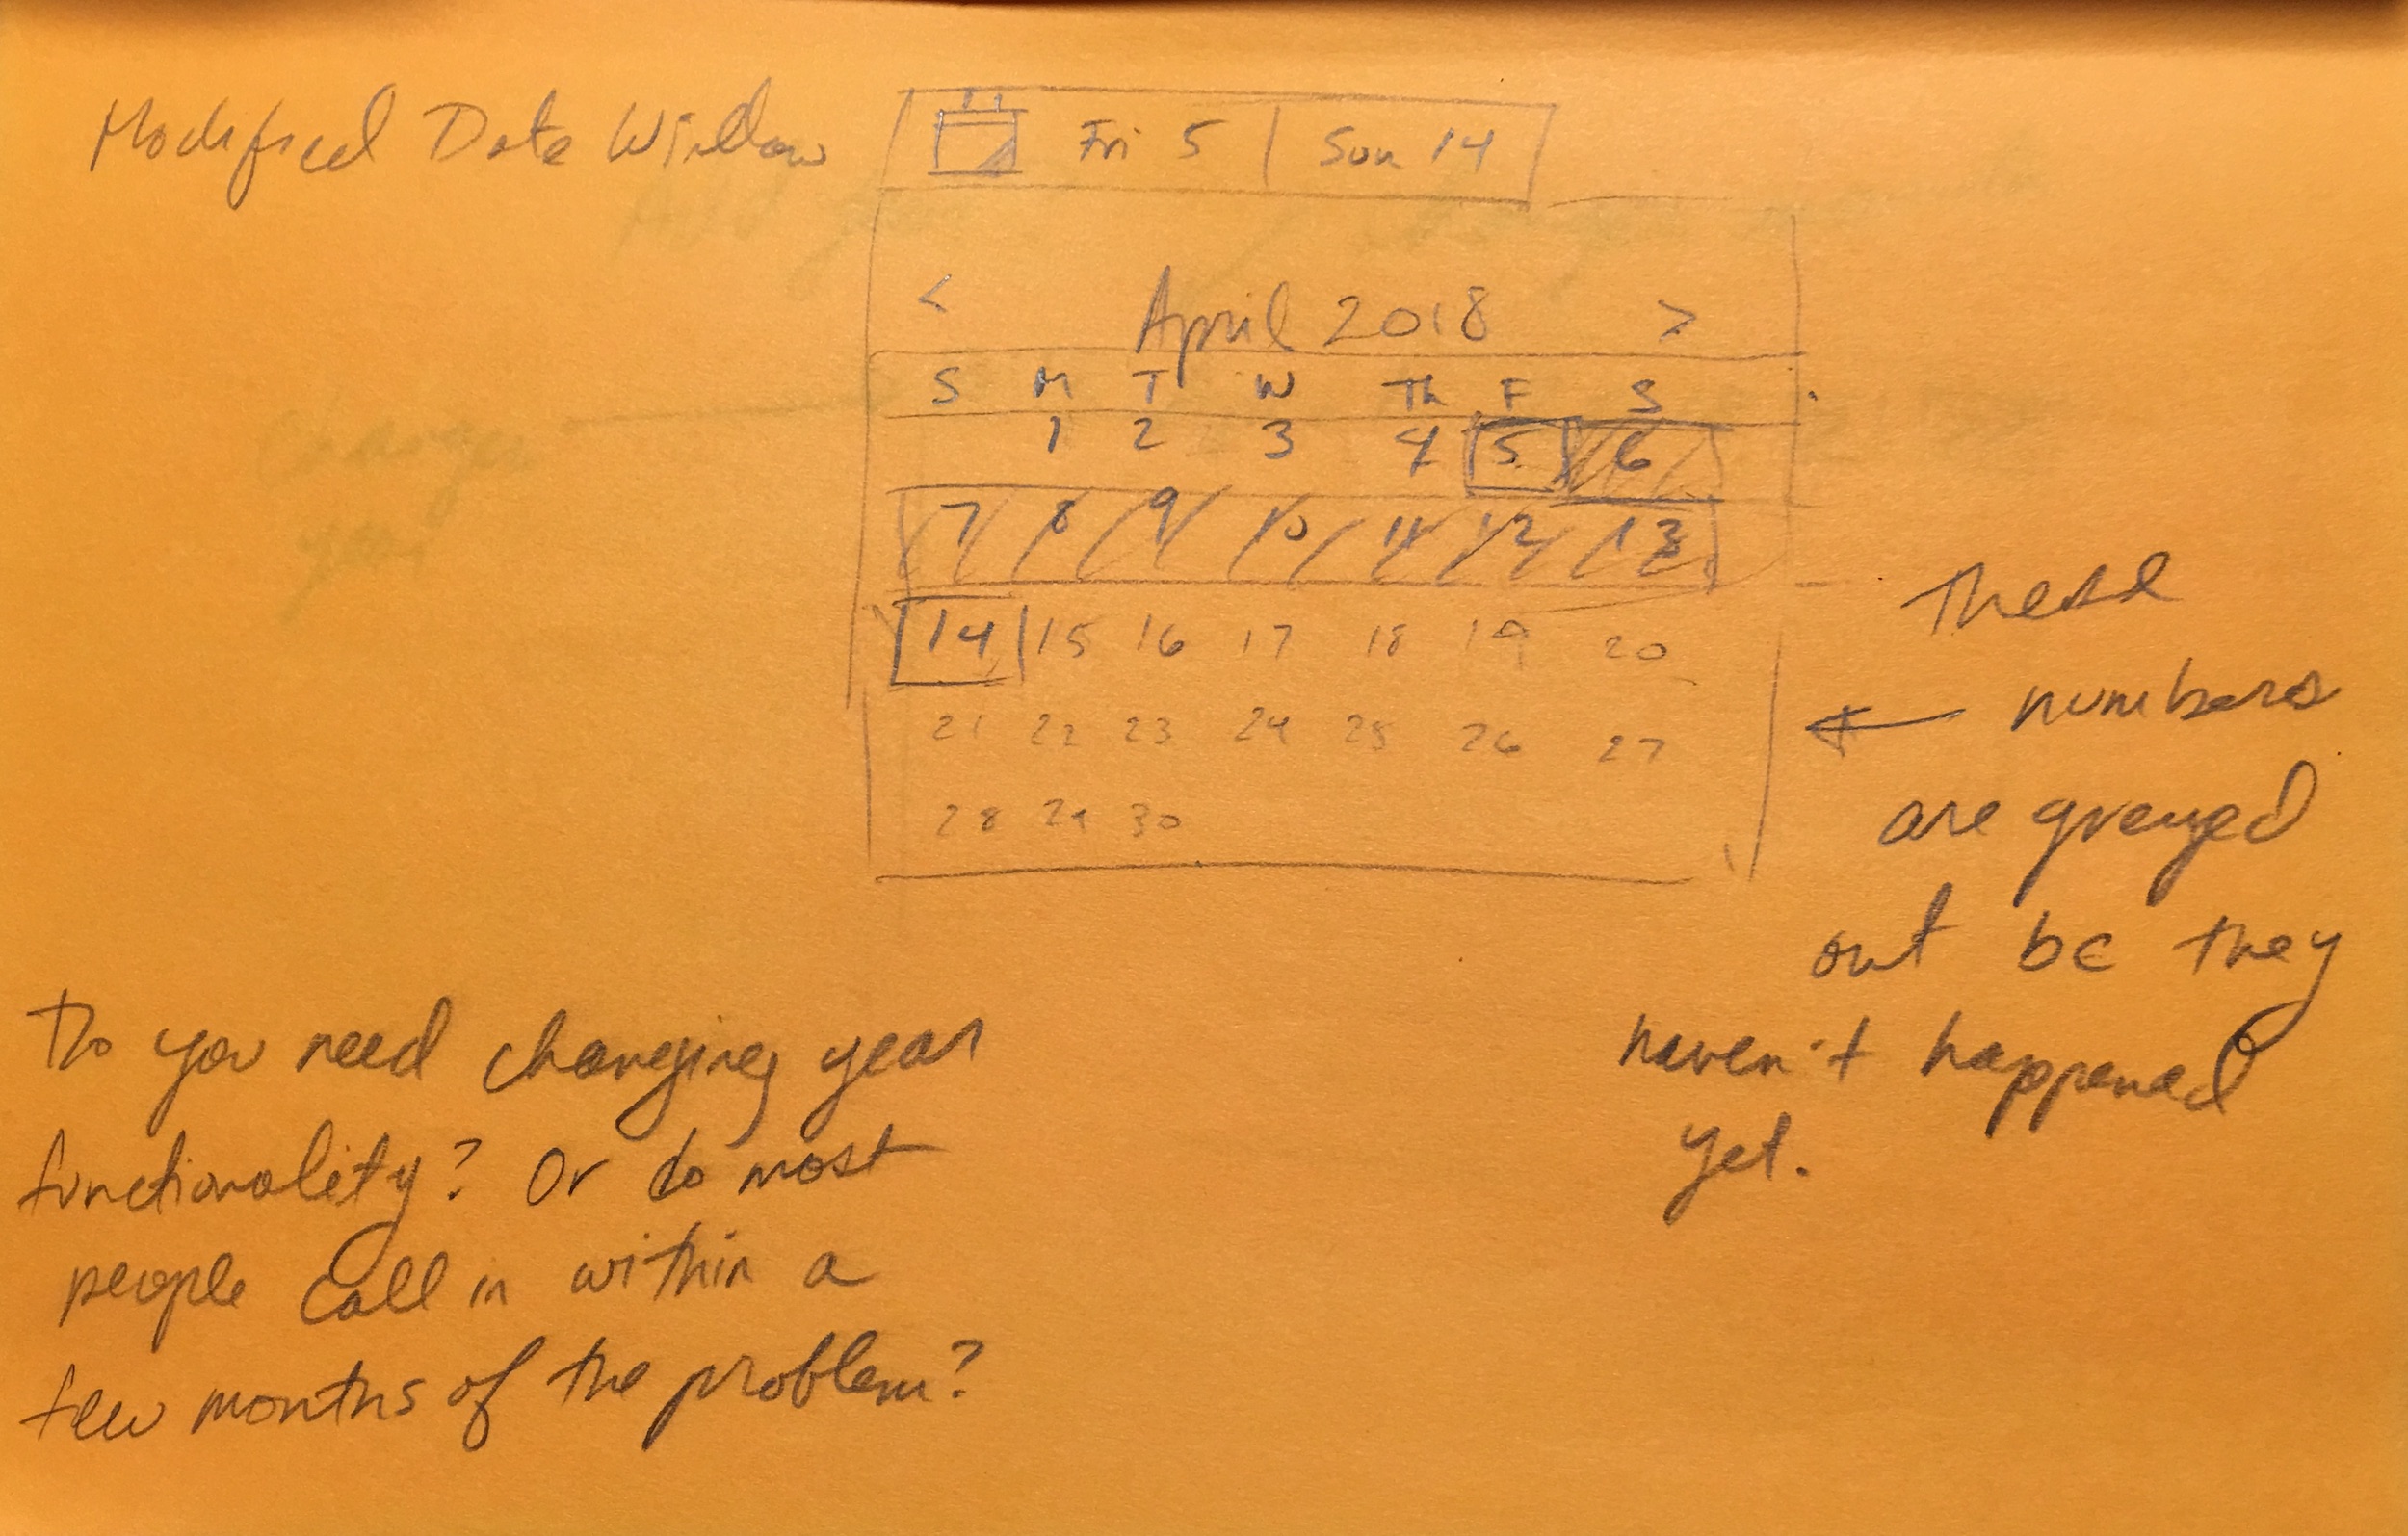 Modified Date Window
Fri 5 | Sun 14
< April 2018 >
S M T W Th F S
1 2 3 4 5 6
7 8 9 10 11 12 13
14 15 16 17 18 19 20
21 22 23 24 25 26 27
28 29 30
These
numbers
are greyed
out bc they
haven't happened
yet.
Do you need changing year
functionality? Or do most
people call in within a
few months of the problem?
changes
year